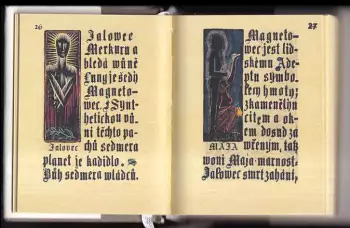 26
Jalowec
Merkura a
bledá wůně
Luny je šedý
Magneto-
wec. I Synt-
hetickou wů-
ní těchto pa-
chů sedmera
Jalowec
planet je kadidlo.
Bůh sedmera wládců.
27
Magneto-
wec jest lid-
skému Ade-
ptu symbo-
lem hmoty;
zkamenělým
citem a ok-
em dosud za
MÁJA
wřeným, tak
wolí Maja-marnost.
Jalowec smrt zahání,